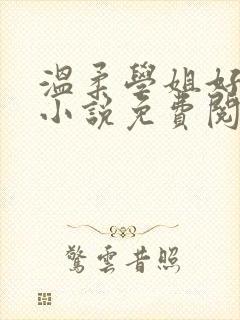 温柔學姐好
小說免費閱
驚雲昔照